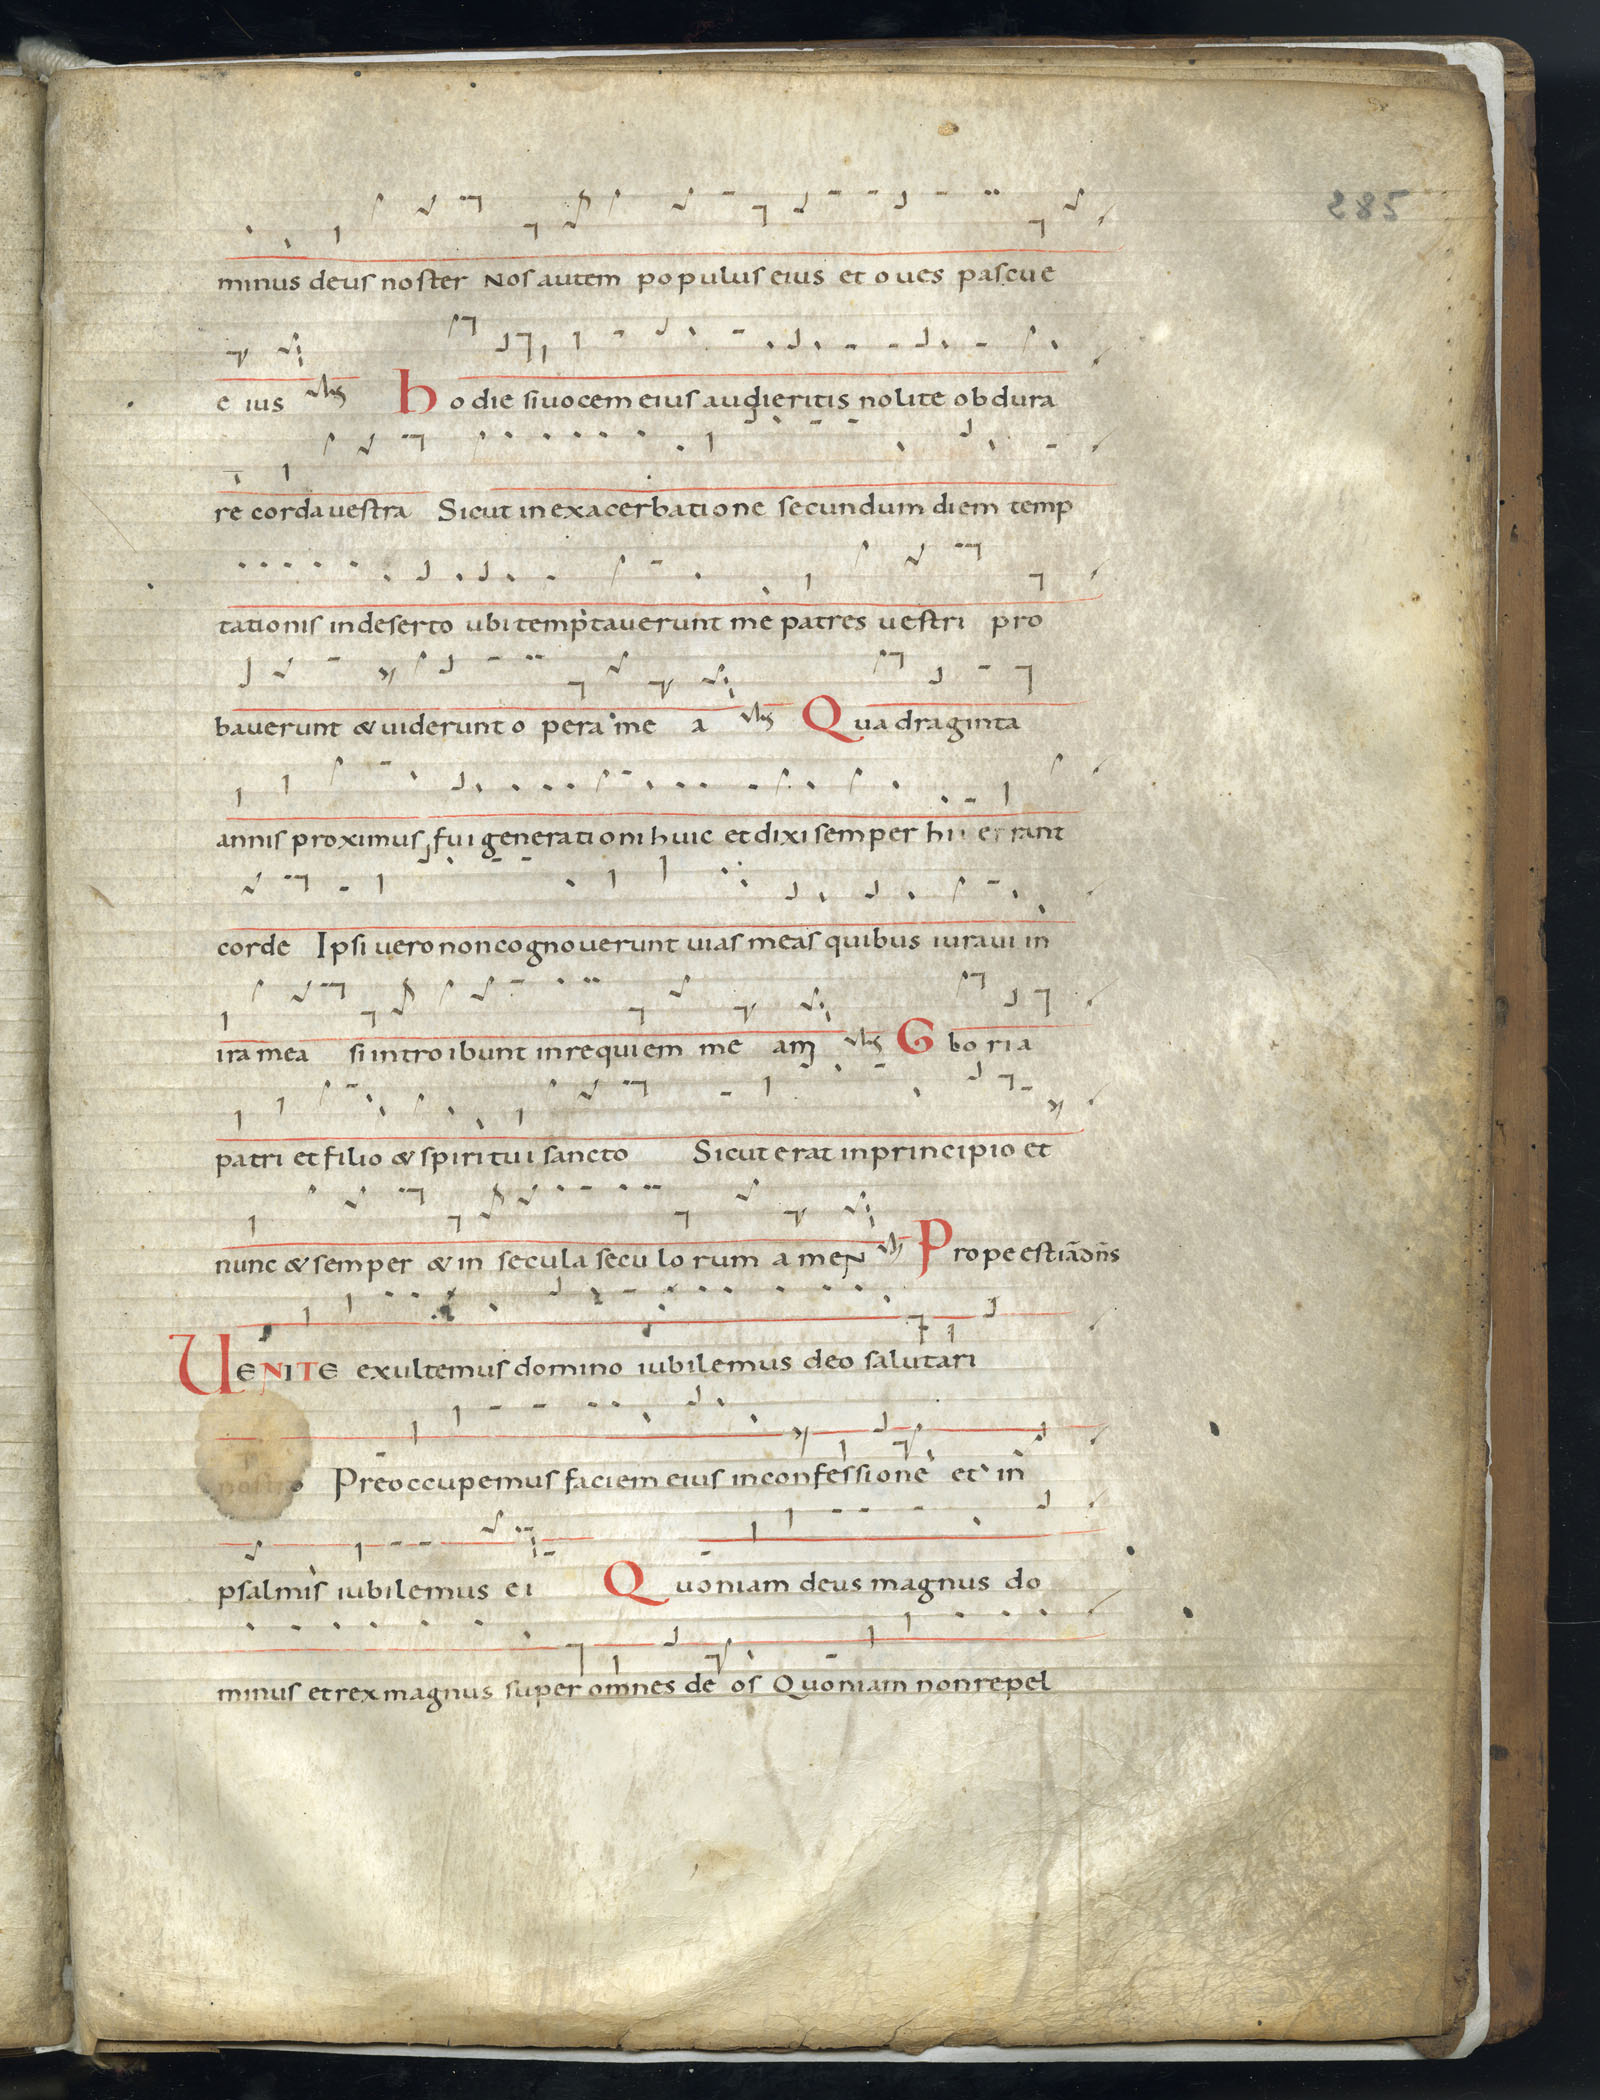 285
minus deus noster Nos autem populus eius et oues pascue
eius Hodie si uocem eius audieritis nolite obdura
re corda uestra Sicut in exacerbatione secundum diem temp
tationis in deserto ubi temptauerunt me patres uestri pro
bauerunt & uiderunt opera me a Quadraginta
annis proximus fui generationi huic et dixi semper hii errant
corde Ipsi uero non cognouerunt uias meas quibus iuraui in
ira mea si introibunt in requiem me am Gloria
patri et filio & spiritui sancto Sicut erat in principio et
nunc & semper & in secula seculorum amen Prope est iā dñs
UENITE exultemus domino iubilemus deo salutari
nostro Preoccupemus faciem eius in confessione et in
psalmis iubilemus ei Quoniam deus magnus do
minus et rex magnus super omnes de os Quoniam non repel